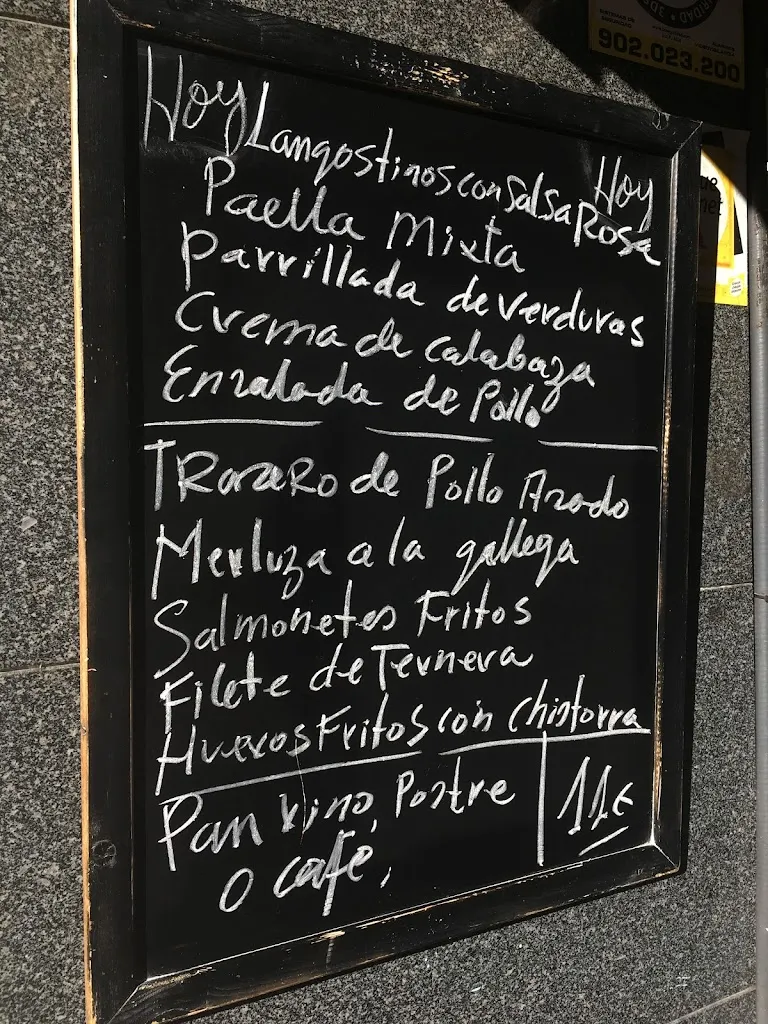 902.023.200
Hoy Langostinos con Salsa Rosa Hoy
Paella Mixta
Parrillada de verduras
Crema de calabaza
Ensalada de Pollo
TRaseRo de Pollo Asado
Merluza a la gallega
Salmonetes Fritos
Filete de Ternera
Huevos Fritos con Chistorra
Pan vino, Postre
o café,
11€